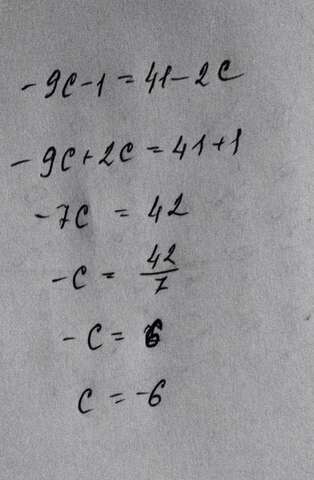 -9c-1=41-2c
-9c+2c=41+1
-7c = 42
-c = 42/7
-c = 6
c = -6